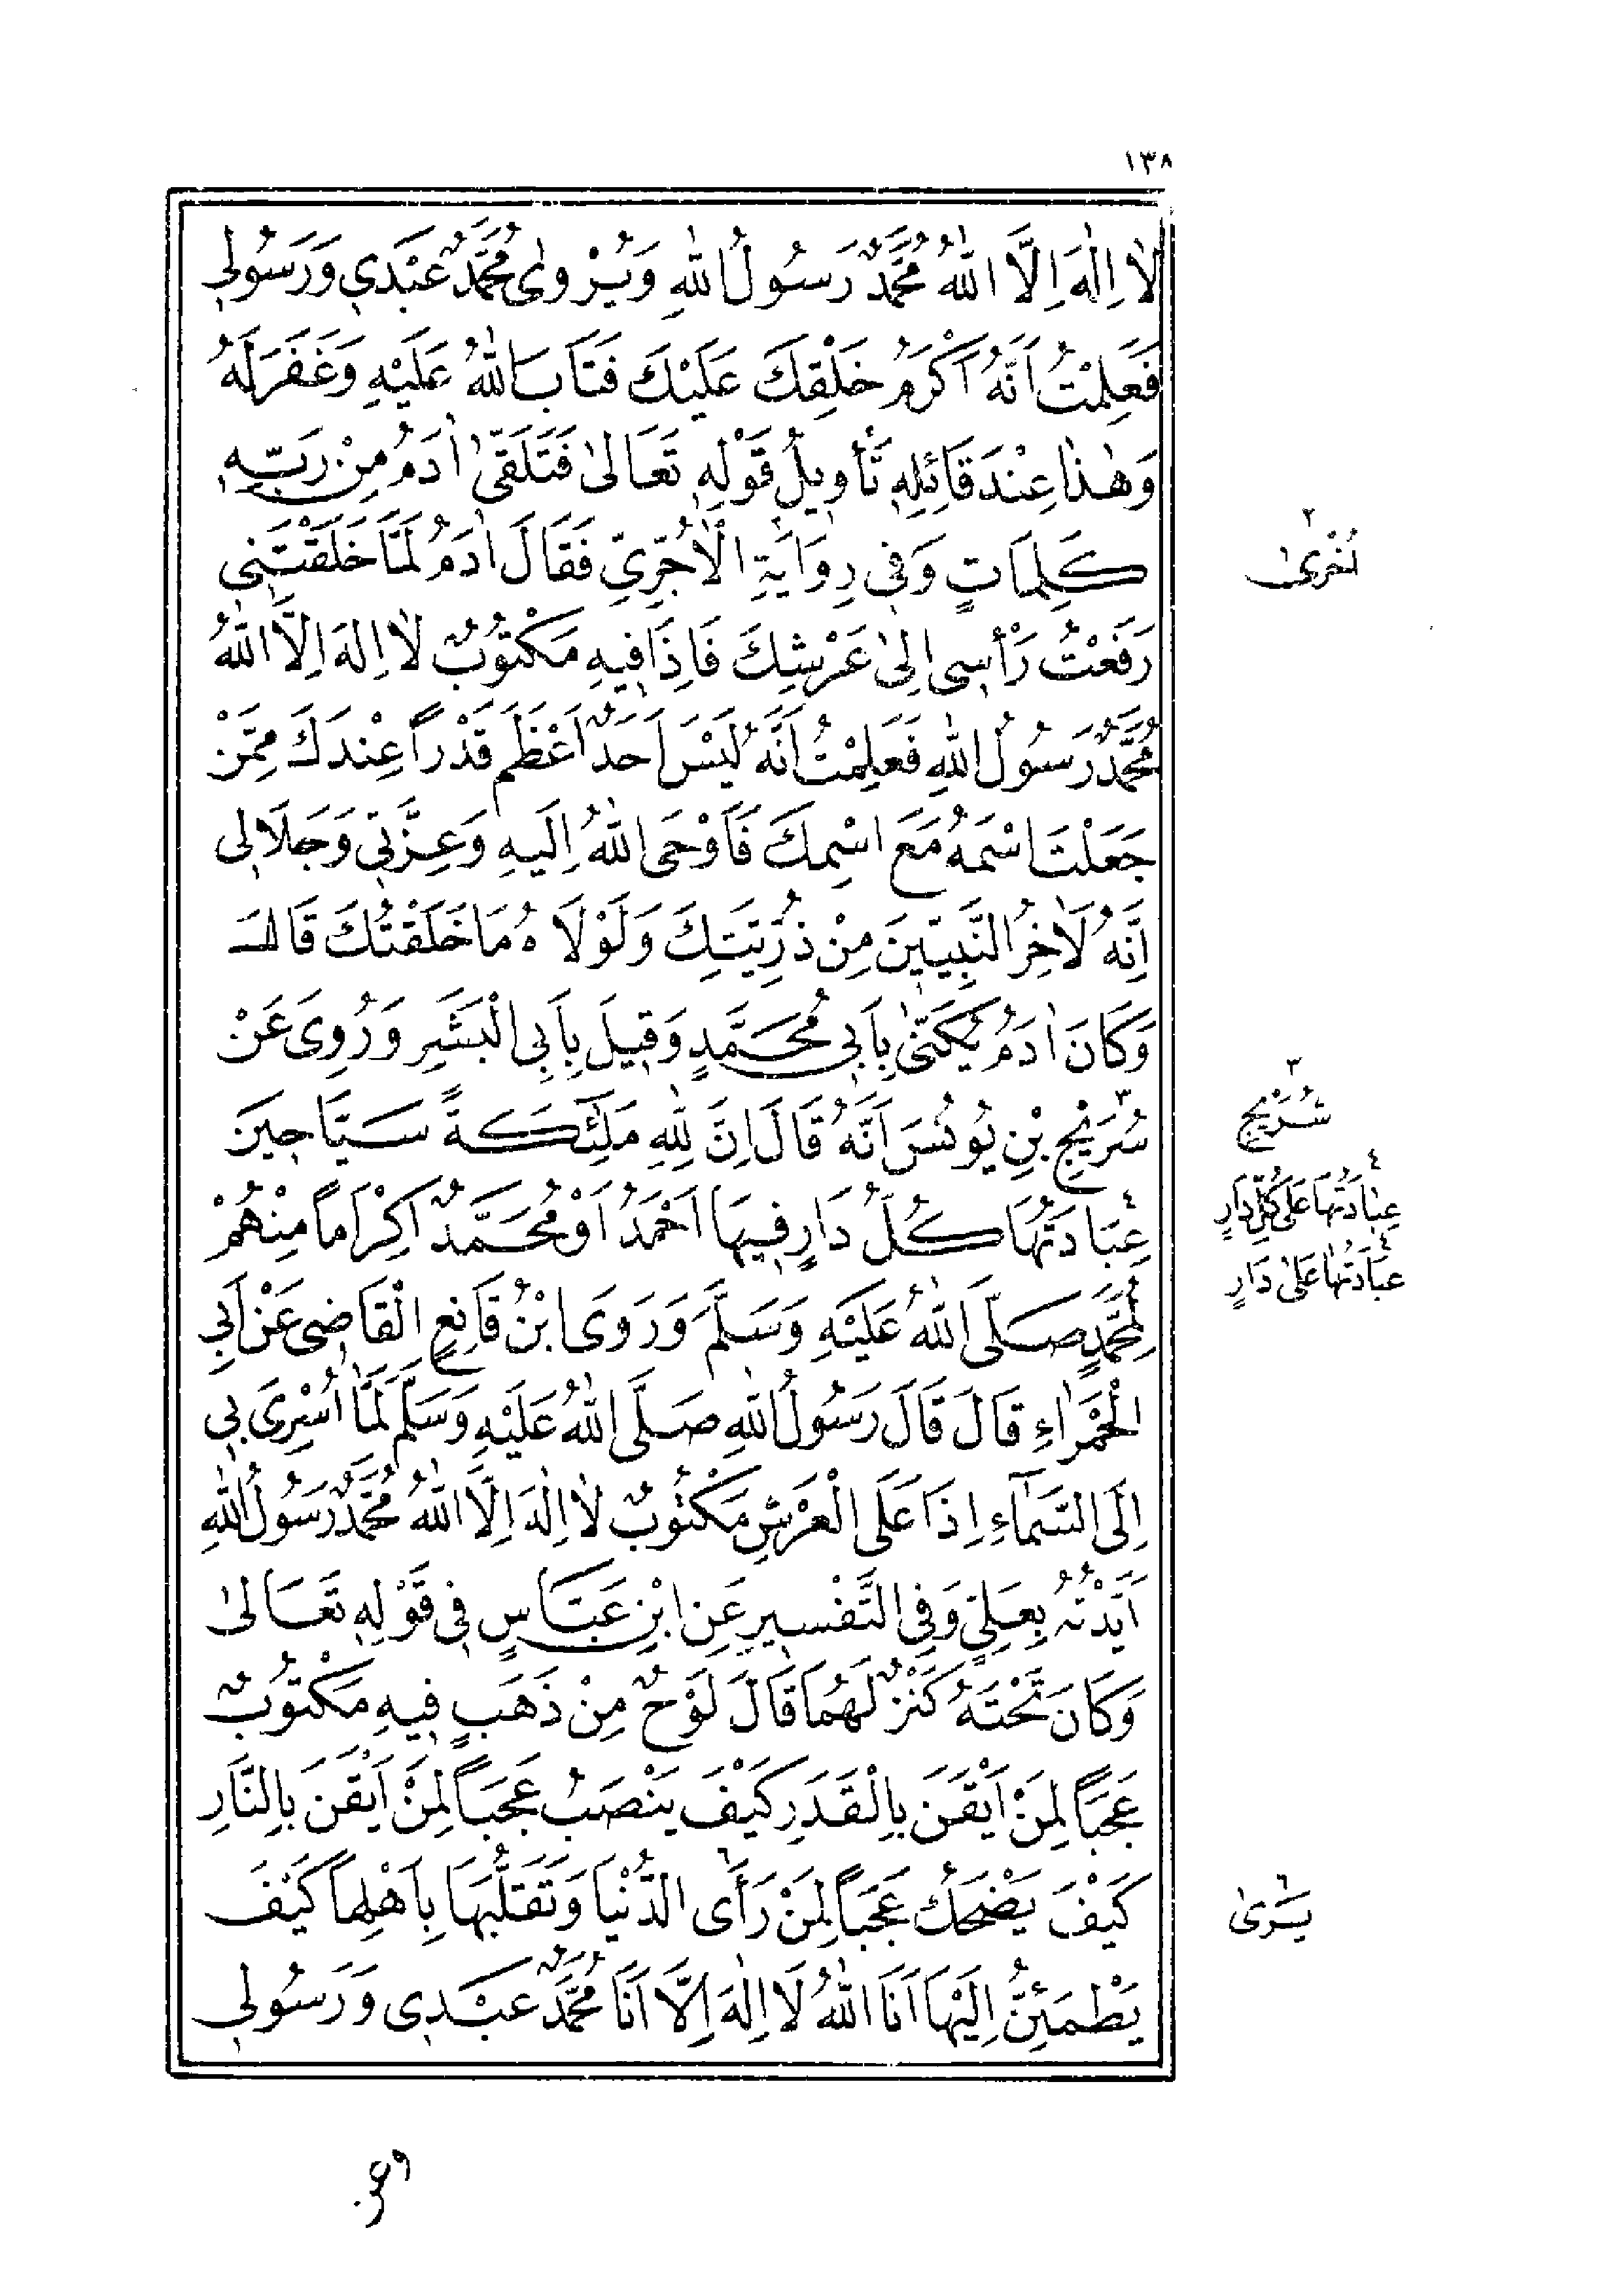 ١٣٨
لَا اِلٰهَ اِلَّا اللّٰهُ مُحَمَّدٌ رَسُولُ اللّٰهِ وَيُرْوٰى مُحَمَّدٌ عَبْدِي وَرَسُولِي
فَعَلِمْتُ اَنَّهُ اَكْرَمُ خَلْقِكَ عَلَيْكَ فَتَابَ اللّٰهُ عَلَيْهِ وَغَفَرَ لَهُ
وَهٰذَا عِنْدَ قَائِلِهِ تَأْوِيلُ قَوْلِهِ تَعَالىٰ فَتَلَقّٰى اٰدَمُ مِنْ رَبِّهِ
كَلِمَاتٍ وَفِي رِوَايَةِ الْاٰجُرِّيِّ فَقَالَ اٰدَمُ لَمَّا خَلَقْتَنِي
رَفَعْتُ رَأْسِي اِلىٰ عَرْشِكَ فَاِذَا فِيهِ مَكْتُوبٌ لَا اِلٰهَ اِلَّا اللّٰهُ
مُحَمَّدٌ رَسُولُ اللّٰهِ فَعَلِمْتُ اَنَّهُ لَيْسَ اَحَدٌ اَعْظَمَ قَدْراً عِنْدَكَ مِمَّنْ
جَعَلْتَ اسْمَهُ مَعَ اسْمِكَ فَاَوْحَى اللّٰهُ اِلَيْهِ وَعِزَّتِي وَجَلَالِي
اِنَّهُ لَاٰخِرُ النَّبِيّينَ مِنْ ذُرِّيَّتِكَ وَلَوْلَاهُ مَا خَلَقْتُكَ قَالَ
وَكَانَ اٰدَمُ يُكَنّٰى بِاَبِي مُحَمَّدٍ وَقِيلَ بِاَبِي الْبَشَرِ وَرُوِيَ عَنْ
سُرَيْجِ بْنِ يُونُسَ اَنَّهُ قَالَ اِنَّ لِلّٰهِ مَلٰئِكَةً سَيَّاحِينَ
عِبَادَتُهَا كُلُّ دَارٍ فِيهَا اَحْمَدُ اَوْ مُحَمَّدٌ اِكْرَاماً مِنْهُمْ
لِمُحَمَّدٍ صَلَّى اللّٰهُ عَلَيْهِ وَسَلَّمَ وَرَوَى ابْنُ قَانِعٍ الْقَاضِي عَنْ اَبِي
الْحَمْرَاءِ قَالَ قَالَ رَسُولُ اللّٰهِ صَلَّى اللّٰهُ عَلَيْهِ وَسَلَّمَ لَمَّا اُسْرِيَ بِي
اِلَى السَّمَاءِ اِذَا عَلَى الْعَرْشِ مَكْتُوبٌ لَا اِلٰهَ اِلَّا اللّٰهُ مُحَمَّدٌ رَسُولُ اللّٰهِ
اَيَّدْتُهُ بِعَلِيٍّ وَفِي التَّفْسِيرِ عَنِ ابْنِ عَبَّاسٍ فِي قَوْلِهِ تَعَالىٰ
وَكَانَ تَحْتَهُ كَنْزٌ لَهُمَا قَالَ لَوْحٌ مِنْ ذَهَبٍ فِيهِ مَكْتُوبٌ
عَجَباً لِمَنْ اَيْقَنَ بِالْقَدَرِ كَيْفَ يَنْصَبُ عَجَباً لِمَنْ اَيْقَنَ بِالنَّارِ
كَيْفَ يَضْحَكُ عَجَباً لِمَنْ رَأَى الدُّنْيَا وَتَقَلُّبَهَا بِاَهْلِهَا كَيْفَ
يَطْمَئِنُّ اِلَيْهَا اَنَا اللّٰهُ لَا اِلٰهَ اِلَّا اَنَا مُحَمَّدٌ عَبْدِي وَرَسُولِي
٢
اُخْرىٰ
٣
شُرَيْحٍ
٤
عِبَادَتُهَا عَلىٰ كُلِّ دَارٍ
٤
عِبَادَتُهَا عَلىٰ دَارٍ
٦
يَرىٰ